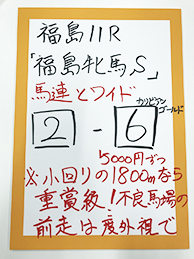 福島11R
「福島牝馬S」
馬連とワイド
カリビアン
ゴールド
2 - 6
5000円ずつ
※小回りの1800mなら
重賞級!不良馬場の
前走は度外視で